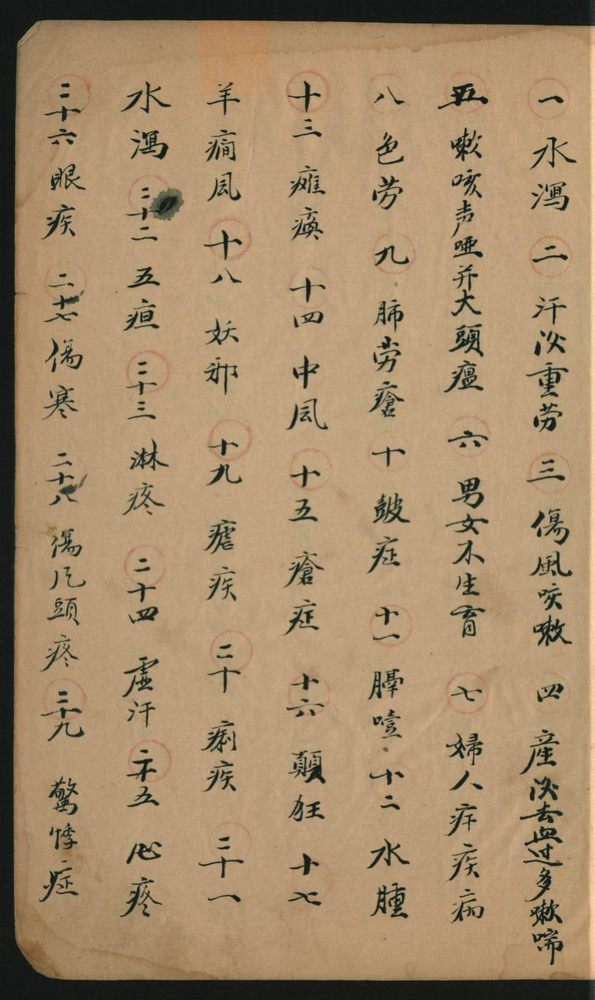 一 水瀉 二 汗後重劳 三 傷風咳嗽 四 產後去血过多嗽喘
五 嗽咳声哑并大頭瘟 六 男女不生育 七 婦人疾病
八 色劳 九 肺劳瘡 十 皷症 十一 膈噎 十二 水腫
十三 瘫瘓 十四 中风 十五 瘡症 十六 顛狂 十七
羊癇风 十八 妖邪 十九 瘧疾 二十 痢疾 二十一
水瀉 二十二 五疸 二十三 淋疼 二十四 虚汗 二十五 心疼
二十六 眼疾 二十七 傷寒 二十八 傷风頭疼 二十九 驚悸症